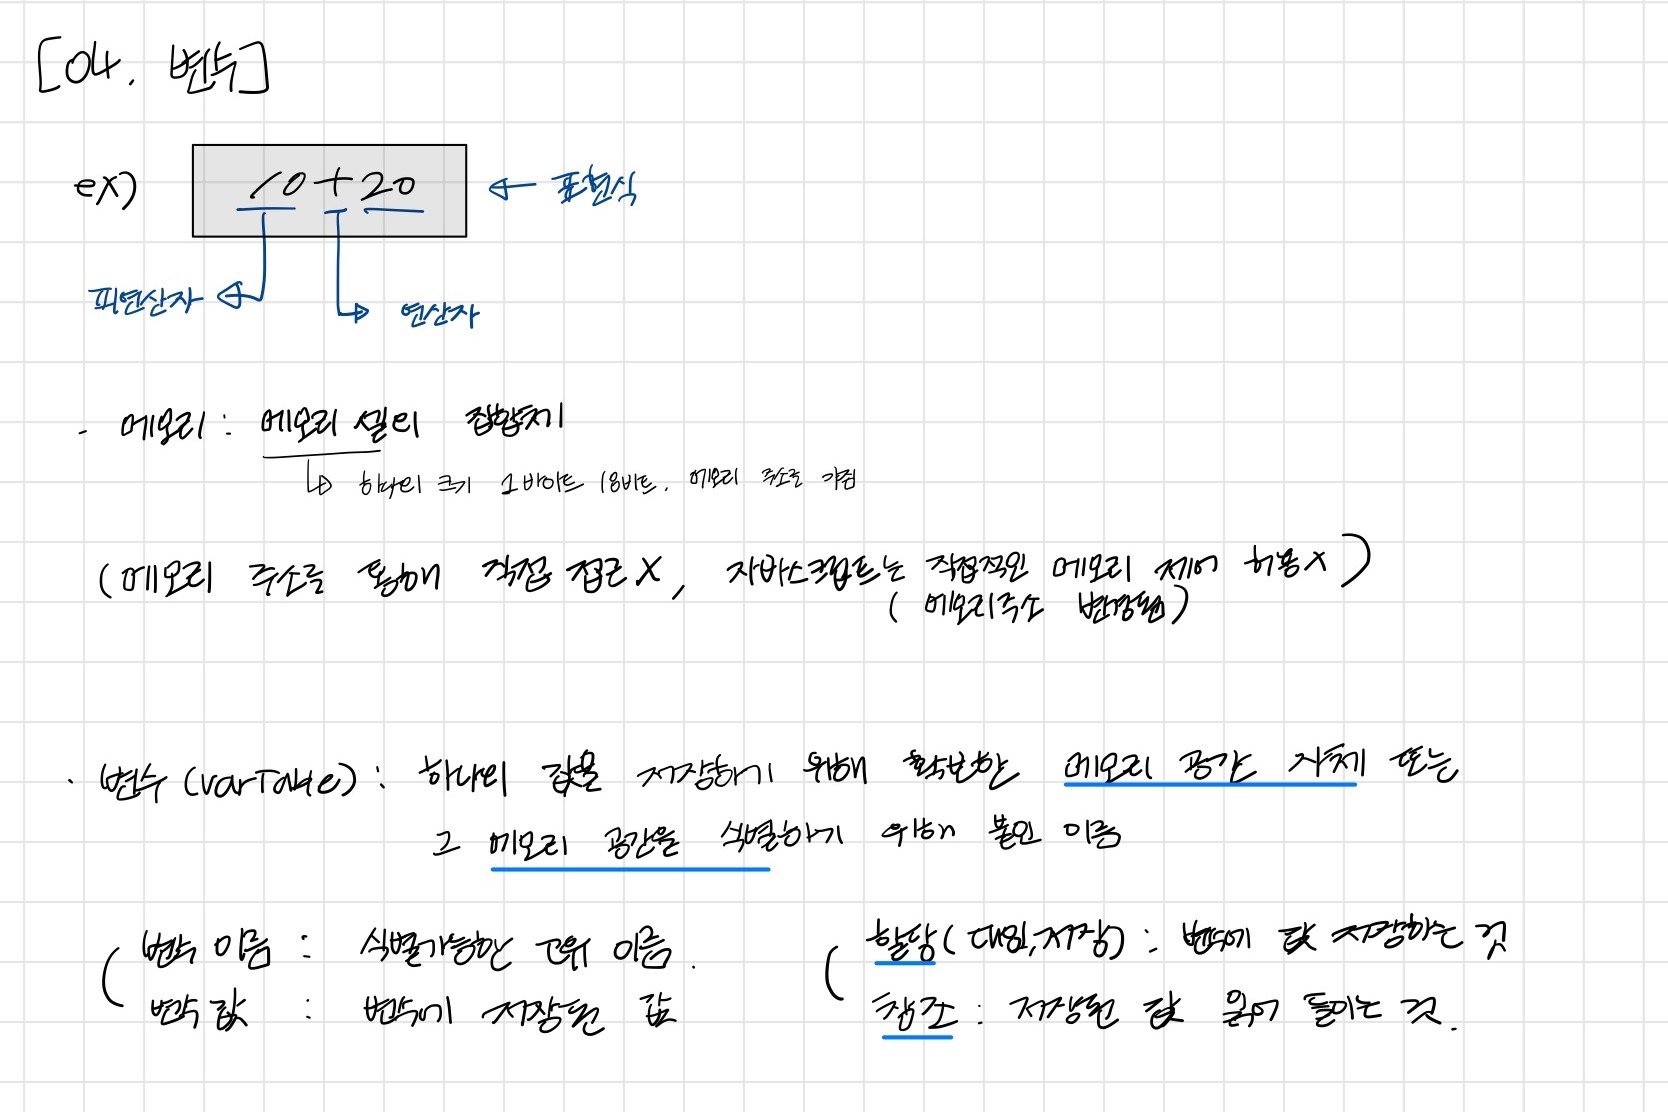 [04. 변수]
ex) 10 + 20 ← 표현식
피연산자 연산자
· 메모리 : 메모리 셀의 집합체
↳ 하나의 크기 1바이트 (8비트. 메모리 주소를 가짐
(메모리 주소를 통해 직접 접근 X, 자바스크립트는 직접적인 메모리 제어 허용 X)
(메모리주소 변경됨)
· 변수 (variable) : 하나의 값을 저장하기 위해 확보한 메모리 공간 자체 또는
그 메모리 공간을 식별하기 위해 붙인 이름
( 변수 이름 : 식별가능한 고유 이름.
변수 값 : 변수에 저장된 값
( 할당(대입,저장) : 변수에 값 저장하는 것
참조 : 저장된 값 읽어 들이는 것.